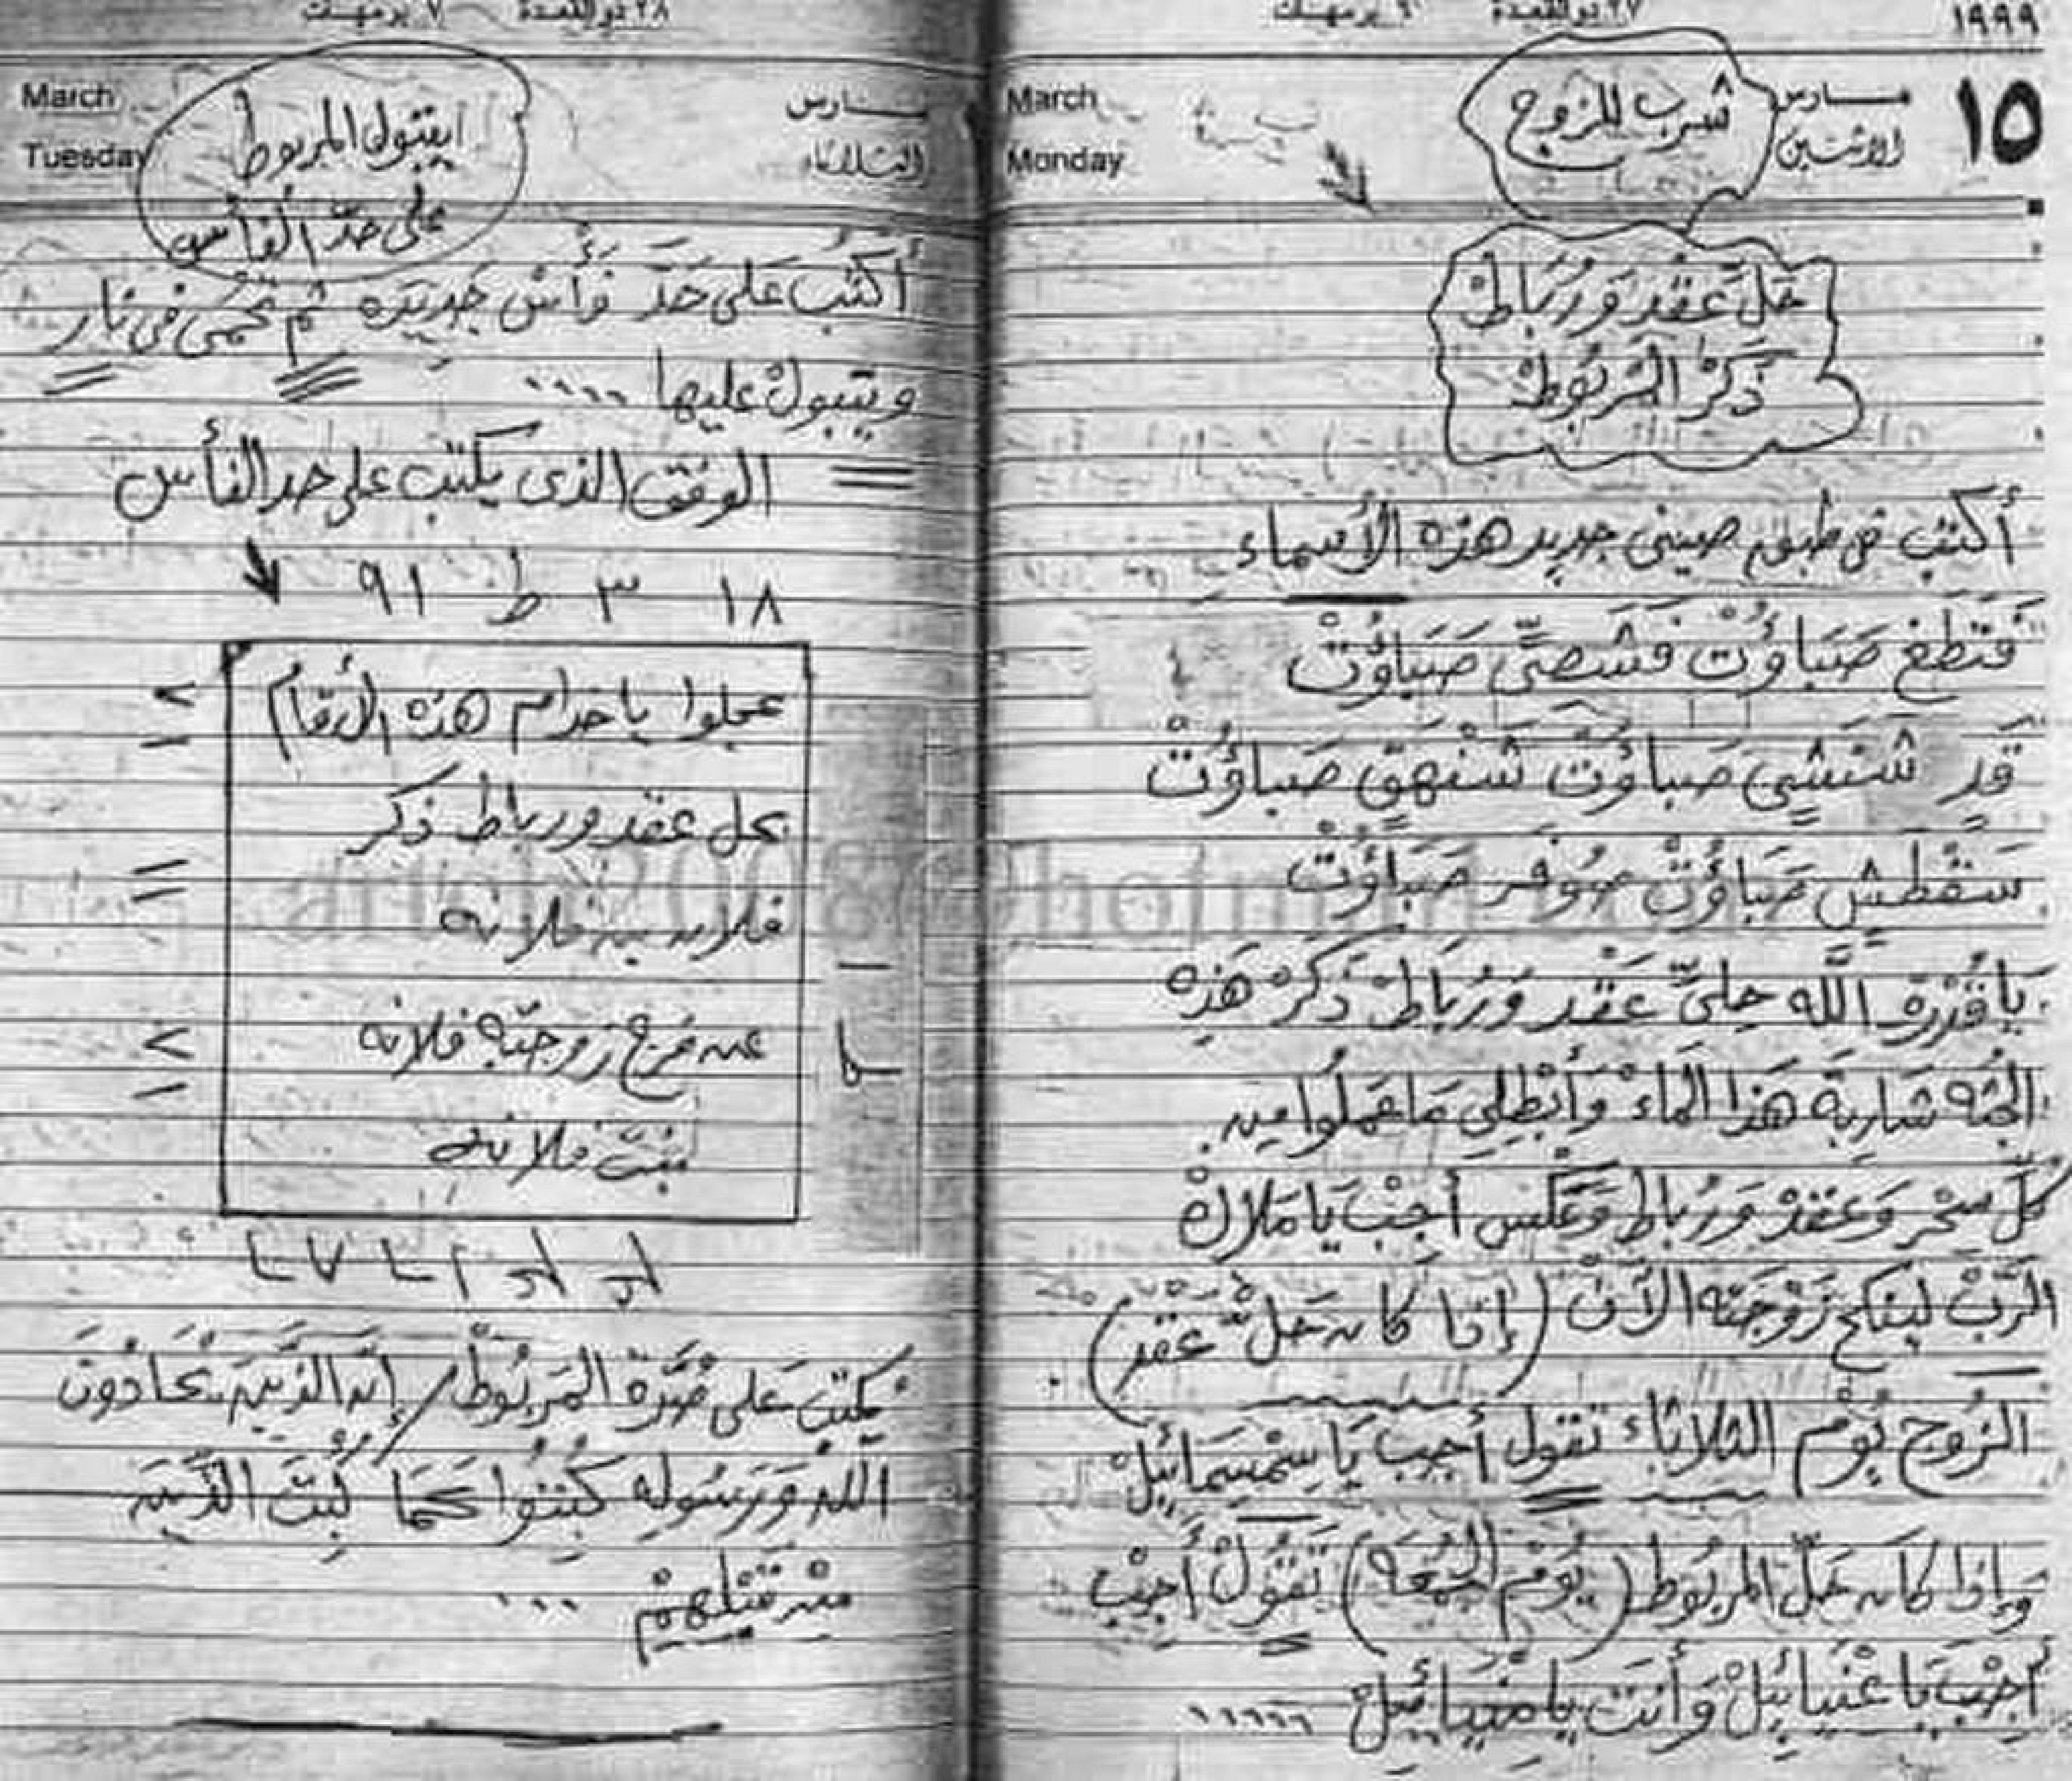 ١٩٩٩
٢٧ ذو القعدة
١٥
مارس
الاثنين
March
Monday
شرب للزوج
حَلّ عقْد وَرُبَاطْ
ذَكَرْ المَرْبُوطْ
أكتب فى طبق صينى جديد هذه الأسماء
صَبَاؤُتْ فَشَصَّى صَبَاؤُتْ
قَدِ شَنشِي صَباؤُتْ شَنْهَقٍ صَباؤُتْ
سَقْطِشٍ صَبَاؤُتْ صَبَاؤُتْ
يَا قُدْرَة اللَّه حِلىِّ عَقْد وَرُبَاطْ ذَكَرْ هَذِه
الجُثه شَارِبَة هَذا الَماءْ وَأَبْطِلىِ مَا عَمَلُوا مِن
كُل سِحْر وَعَقدْ وَرُباط وَعَكْس أَجِبْ يَا مَلاكْ
الرَّبْ لينكح زَوْجَته الآنْ (إذا كان حَلّ عَقْد)
الزوج يَوْم الثلاثاء تقول أجِب يَا سِمْسِمَائِيلْ
وَإذا كَان حَلّ المربُوط (يَوْم الجُمْعَه) تَقُولْ أَجِبْ
أَجِبْ يَا عَنْيَائِيلْ وَأنت يَا مَنْيَائِيلْ
٢٨ ذو القعدة
٧ برمهات
مارس
الثلاثاء
March
Tuesday
ليتبول المربوط
على حَدّ الفأس
أكتُب عَلى حَدّ فأس جَدِيدَه ثم تُحْمى فى نار
ويَتبولْ عليها ....
الوفق الذى يكتب على حد الفأس
١٨ ٣ ط ٩١
عجلوا يا خدام هذه الأرقام
بحل عقد ورباط ذكر
فلان بن فلانه
عن فرج زوجته فلانه
بنت فلانه
يُكتب عَلى صُرّة المَرْبُوطْ / إنّ الذَّين يُحَادّونَ
اللّه وَرَسُوله كُبِتُوا كَمَا كُبِتَ الذَّين
مِنْ قَبْلِهِمْ ...